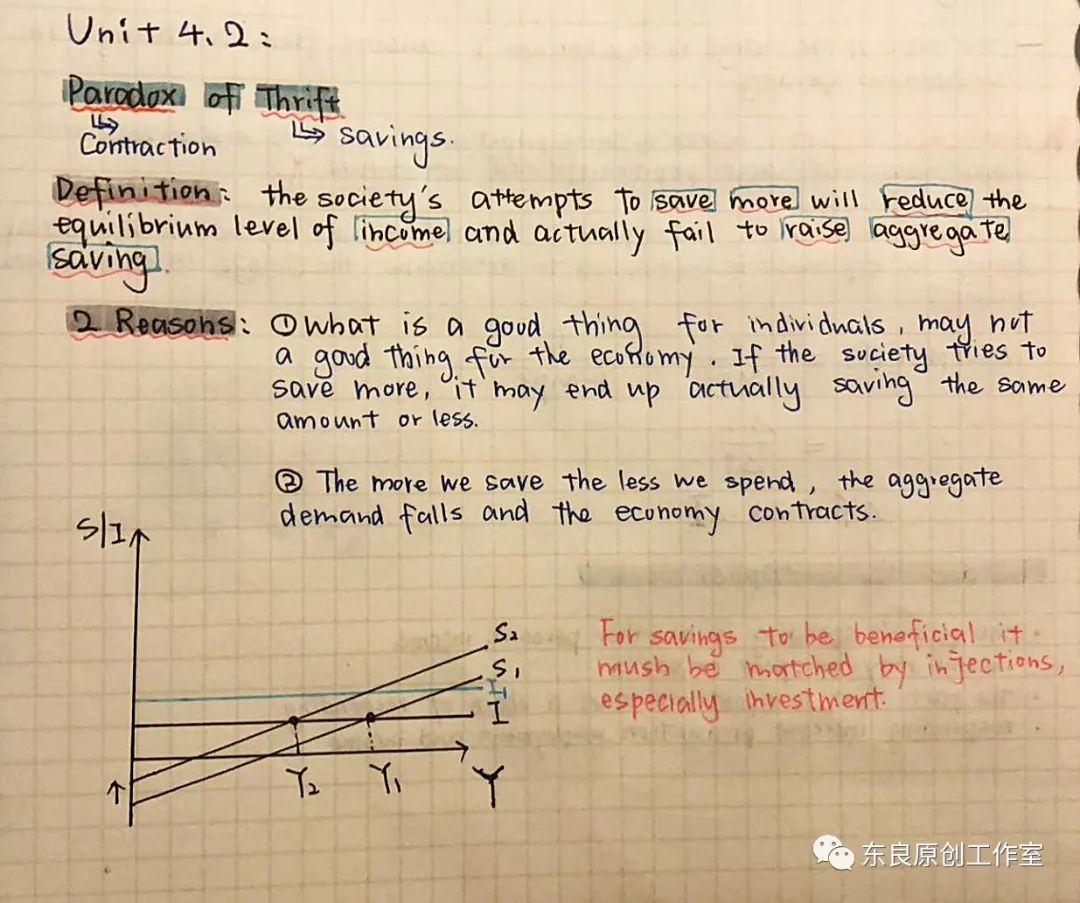 Unit 4.2:
Paradox of Thrift
↳ Contraction
↳ savings.
Definition: the society's attempts to save more will reduce the
equilibrium level of income and actually fail to raise aggregate
saving.
2 Reasons: ① What is a good thing for individuals, may not
a good thing for the economy. If the society tries to
save more, it may end up actually saving the same
amount or less.
② The more we save the less we spend, the aggregate
demand falls and the economy contracts.
S/I
S2
S1
I1
I
Y2
Y1
Y
For savings to be beneficial it
mush be matched by injections,
especially investment.
东良原创工作室